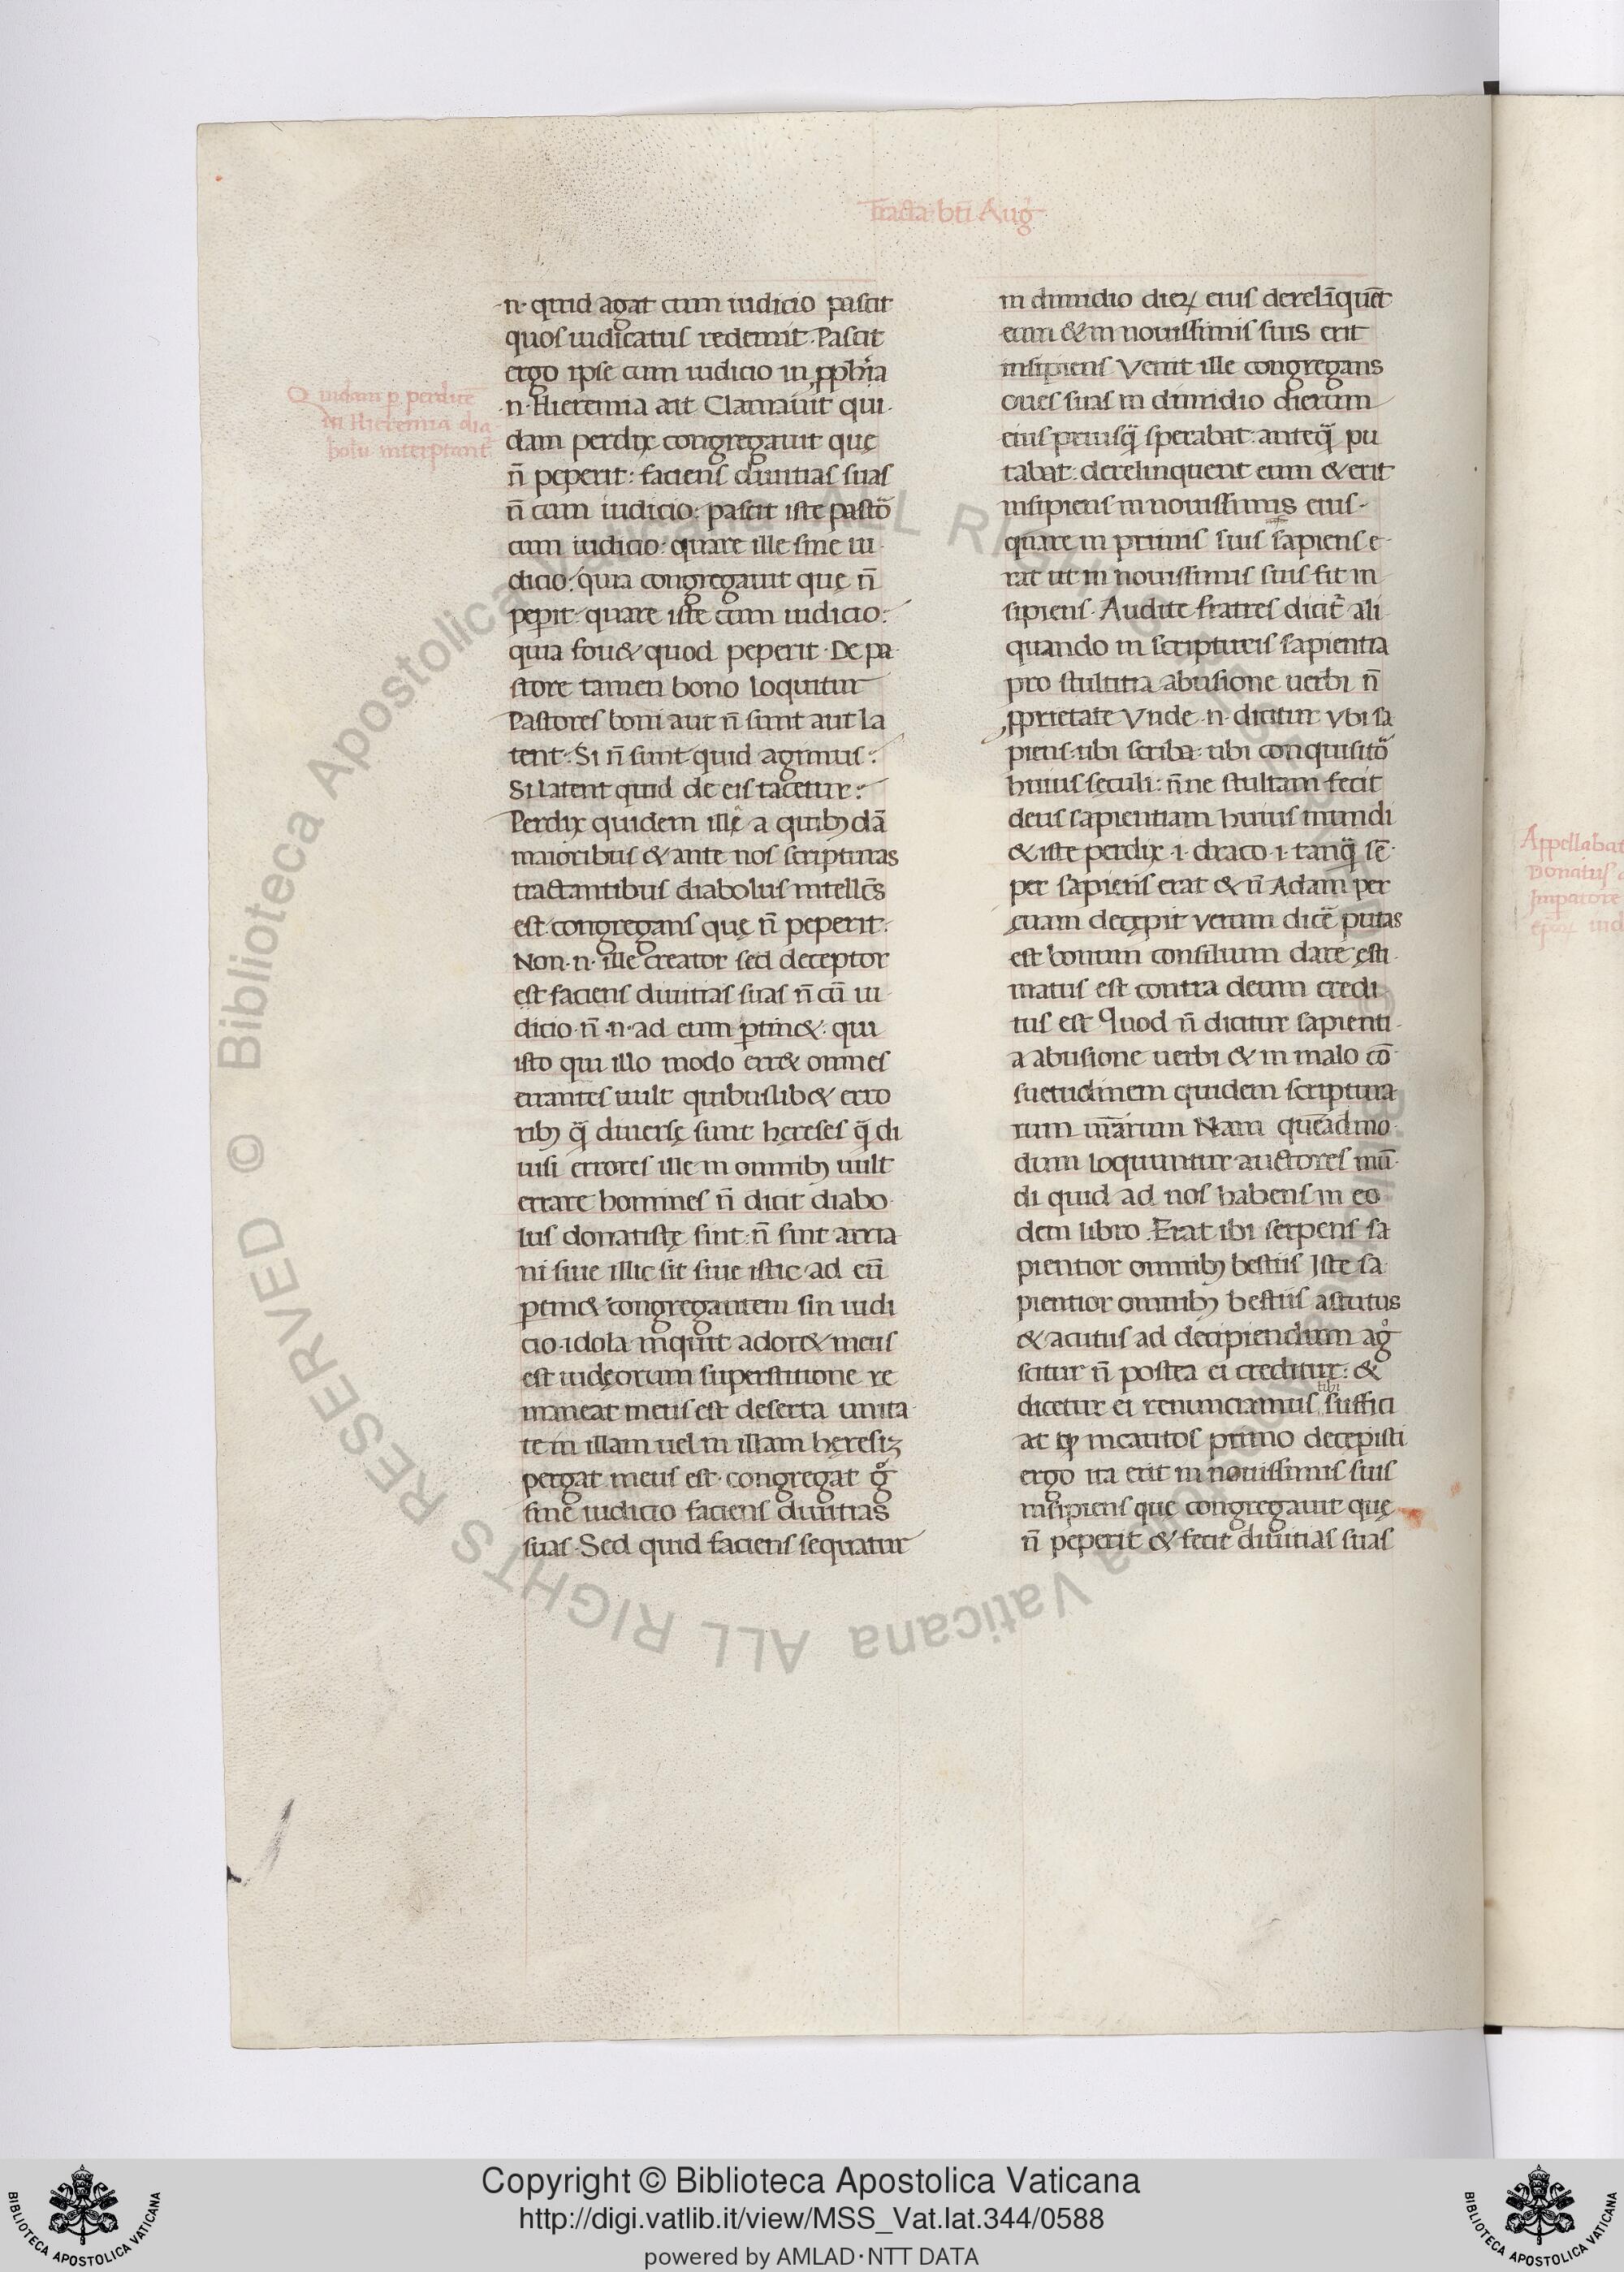 Tracta bti Aug
n· quid agat cum iudicio pascit
quos iudicatus redemit· Pascit
ergo ipse cum iudicio in ꝓph̄ia
n· Hieremia ait Clamauit qui
dam perdix congregauit quę
n̄ peperit: faciens diuitias suas
n̄ cum iudicio: pascit iste pasto᷑
cum iudicio: quare ille sine iu
dicio: quia congregauit quę n̄
peꝑit: quare iste cum iudicio:
quia fou& quod peperit· De pa
store tamen bono loquitur
Pastores boni aut n̄ sunt aut la
tent: Si n̄ sunt quid agimus:
Si latent quid de eis tacetur:
Perdix quidem ille a quibꝫdā
maioribus & ante nos scripturas
tractantibus diabolus intellc̄s
est congregans quę n̄ peperit:
Non· n· ille creator sed deceptor
est faciens diuitias suas n̄ cū iu
dicio· n̄· n· ad eum ꝑtin&· qui
isto qui illo modo err& omnes
errantes uult quibuslib& erro
ribꝫ q̄ diuersę sunt hęreses q̄ di
uisi errores ille in omnibꝫ uult
errare homines n̄ dicit diabo
lus donatistę sint: n̄ sint arria
ni siue illic sit siue istic ad eū
ꝑtin& congregantem sin iudi
cio· idola inquit ador& meus
est iudęorum superstitione re
maneat meus est deserta unita
te in illam uel in illam hęresiꝫ
pergat meus est· congregat g̊
sine iudicio faciens diuitias
suas· Sed quid faciens sequatur
Quidam ꝑ perdice
in Hieremia dia
bolū interptant᷑
in dimidio dieꝝ eius derelīquēt
eum & in nouissimis suis erit
insipiens Venit ille congregans
oues suas in dimidio dierum
eius priusq̄ sperabat: anteq̄ pu
tabat: derelinquent eum & erit
insipiens in nouissimis eius·
quare in primis suis sapiens e
rat ut in nouissimis suis sit in
sipiens· Audite fratres dicit᷑ ali
quando in scripturis sapientia
pro stultitia abusione uerbi n̄
ꝓprietate Vnde· n· dicitur vbi sa
piens· ubi scriba· ubi conquisito᷑
huius seculi: n̄ne stultam fecit
deus sapientiam huius mundi
& iste perdix· i· draco· i· tanq̄ sē
per sapiens erat & n̄ Adam per
euam decepit verum dicē putas
est bonum consilium dare esti
matus est contra deum credi
tus est Quod n̄ dicitur sapienti
a abusione uerbi & in malo cō
suetudinem quidem scriptura
rum nr̄arum Nam quēadmo
dum loquuntur auctores mū
di quid ad nos habens in eo
dem libro· Erat ibi serpens sa
pientior omnibꝫ bestiis Iste sa
pientior omnibꝫ bestiis astutus
& acutus ad decipiendum ag̊
scitur n̄ postea ei creditur: &
dicetur ei renunciamus tibi suffici
at incautos primo decepisti
ergo ita erit in nouissimis suis
insipiens quę congregauit quę
n̄ peperit & fecit diuitias suas
Appellabat
Donatus
Impatore
Biblioteca Apostolica Vaticana ALL RIGHTS RESERVED ©
Copyright © Biblioteca Apostolica Vaticana
http://digi.vatlib.it/view/MSS_Vat.lat.344/0588
powered by AMLAD·NTT DATA
BIBLIOTECA APOSTOLICA VATICANA
BIBLIOTECA APOSTOLICA VATICANA